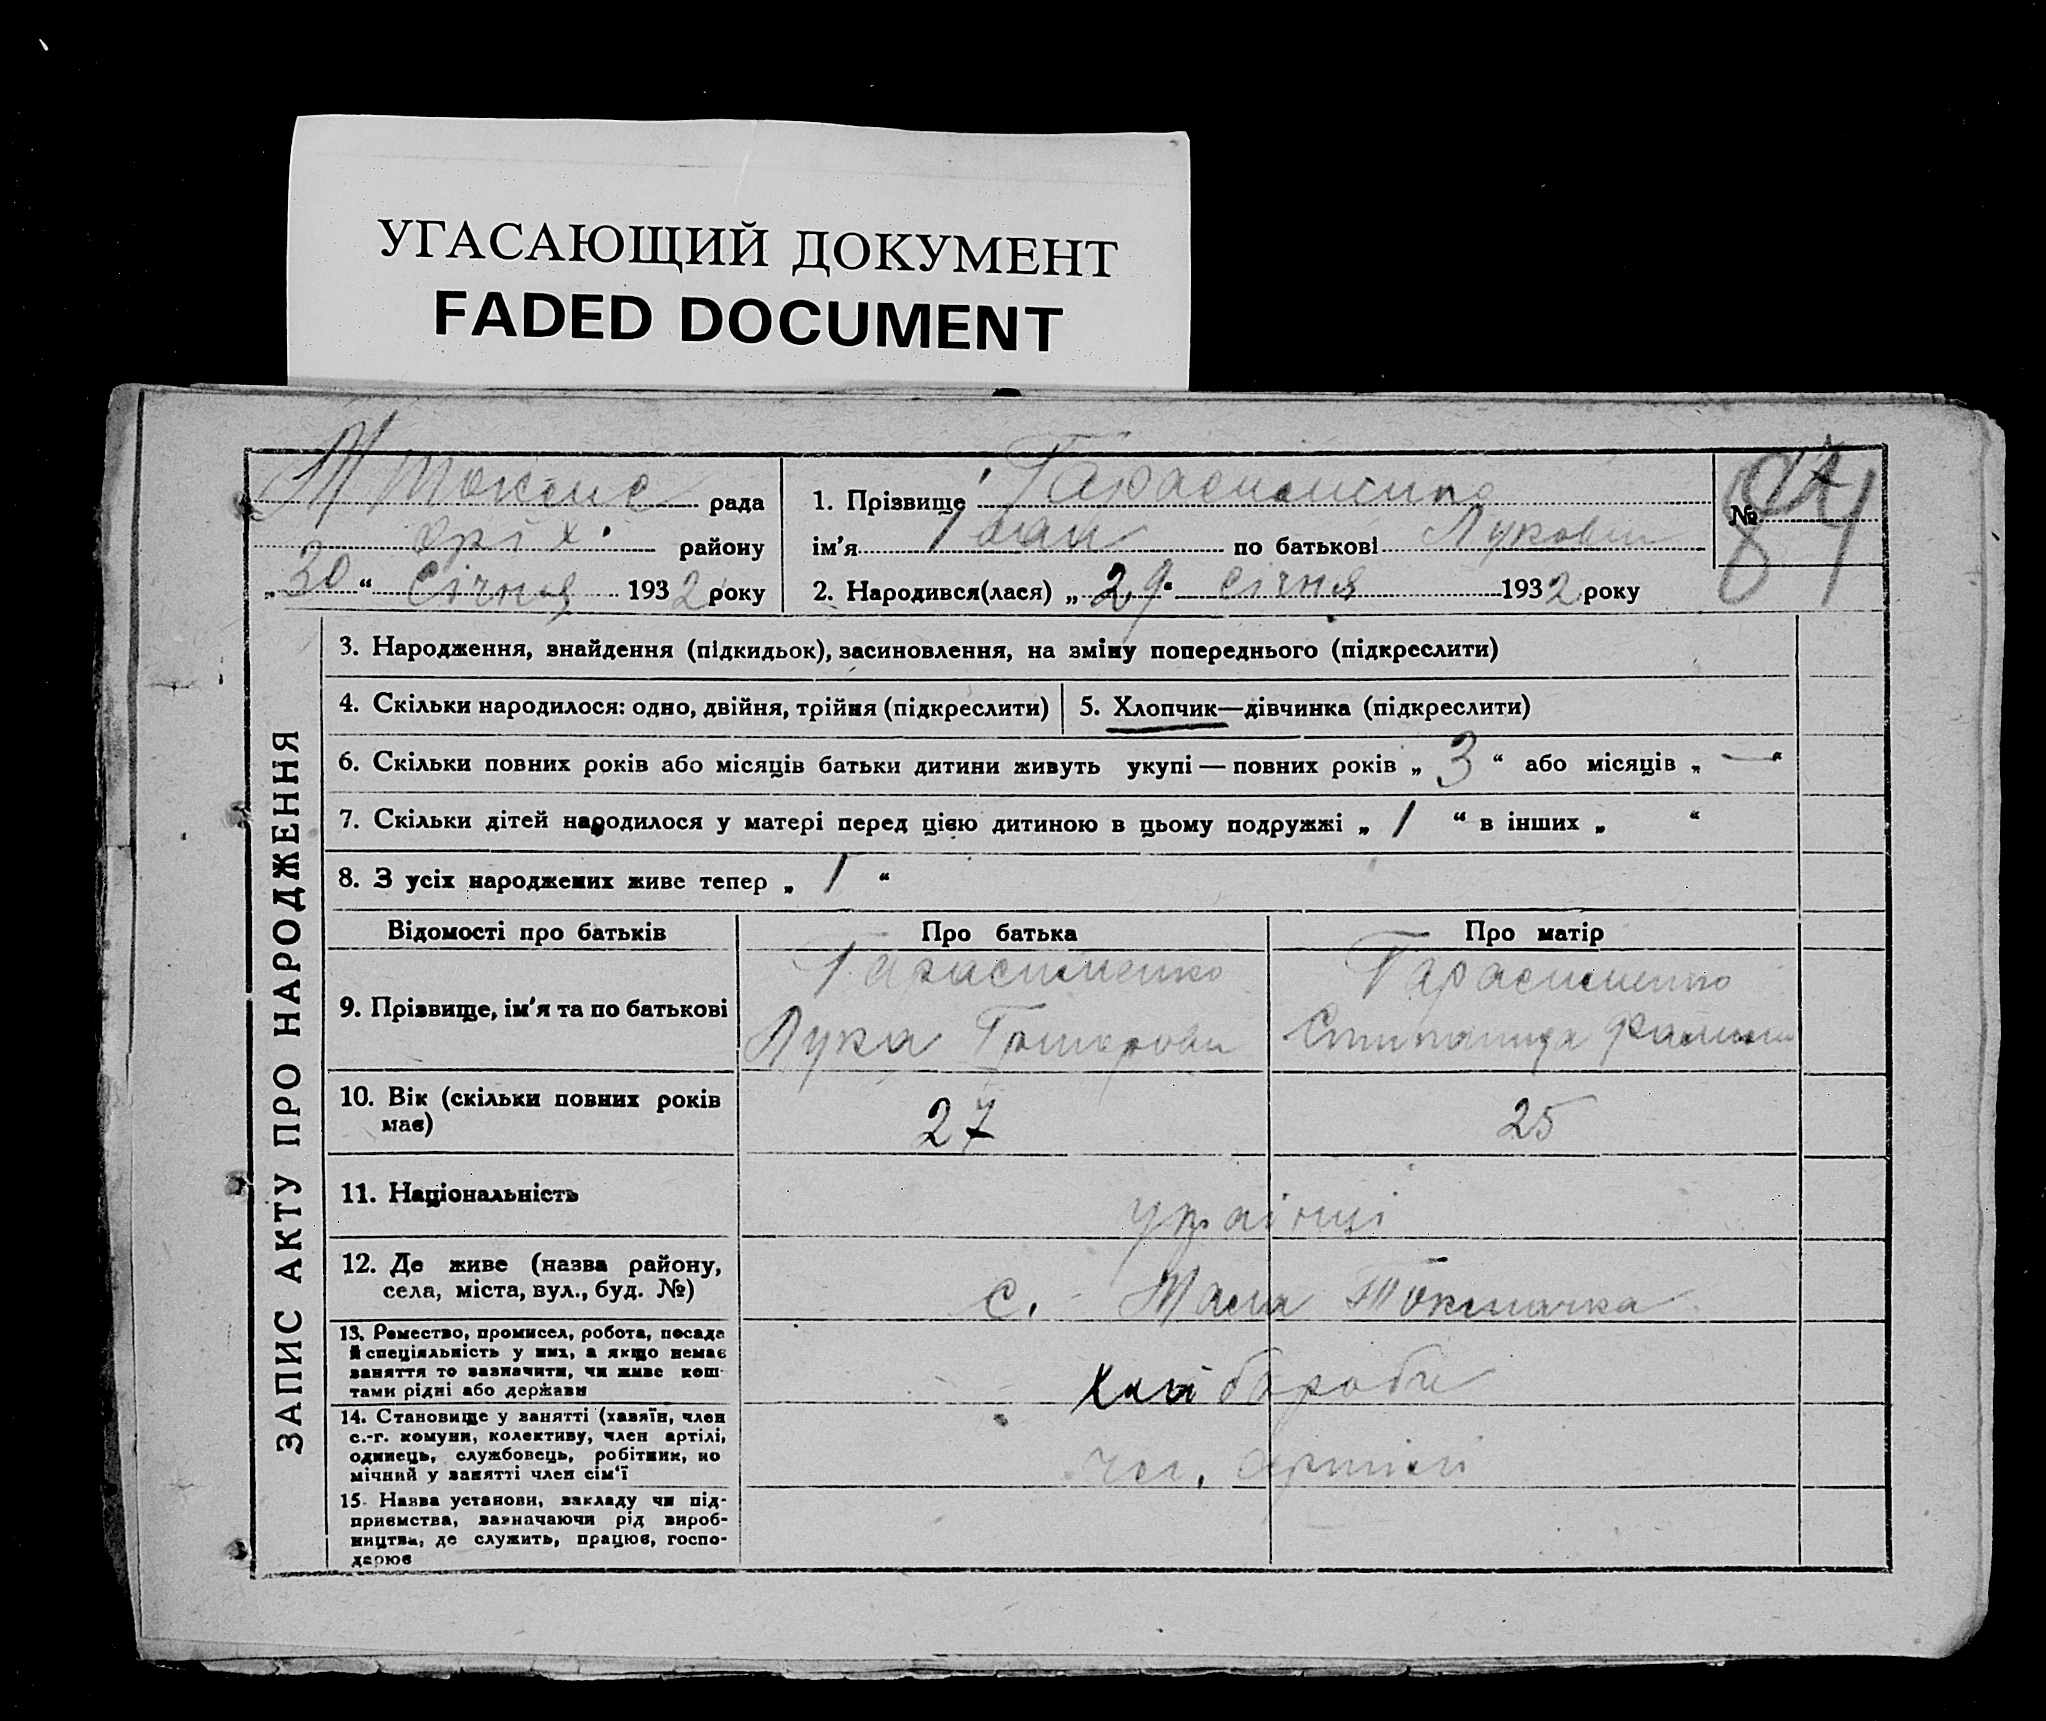 УГАСАЮЩИЙ ДОКУМЕНТ
FADED DOCUMENT
М Токмач рада
Оріх. району
„30“ Січня 1932 року
1. Прізвище Гарасименко
ім'я Іван по батькові Лукович
2. Народився(лася) „29“ січня 1932 року
№ 84
ЗАПИС АКТУ ПРО НАРОДЖЕННЯ
3. Народження, знайдення (підкидьок), засиновлення, на зміну попереднього (підкреслити)
4. Скільки народилося: одно, двійня, трійня (підкреслити)
5. Хлопчик—дівчинка (підкреслити)
6. Скільки повних років або місяців батьки дитини живуть укупі — повних років „3“ або місяців „—“
7. Скільки дітей народилося у матері перед цією дитиною в цьому подружжі „1“ в інших „ “
8. З усіх народжених живе тепер „1“
Відомості про батьків
Про батька
Про матір
9. Прізвище, ім'я та по батькові
Гарасименко
Лука
Гарасименко
10. Вік (скільки повних років
має)
27
25
11. Національність
українці
12. Де живе (назва району,
села, міста, вул., буд. №)
с. Мала Токмачка
13. Ремество, промисел, робота, посада
й спеціяльність у них, а якщо немає
заняття то зазначити, чи живе кош-
тами рідні або держави
хліборобн
14. Становище у занятті (хазяїн, член
с.-г. комуни, колективу, член артілі,
одинець, службовець, робітник, по
мічний у занятті член сім'ї
чл. артілі
15. Назва установи, закладу чи під-
приємства, зазначаючи рід вироб-
ництва, де служить, працює, госпо-
дарює